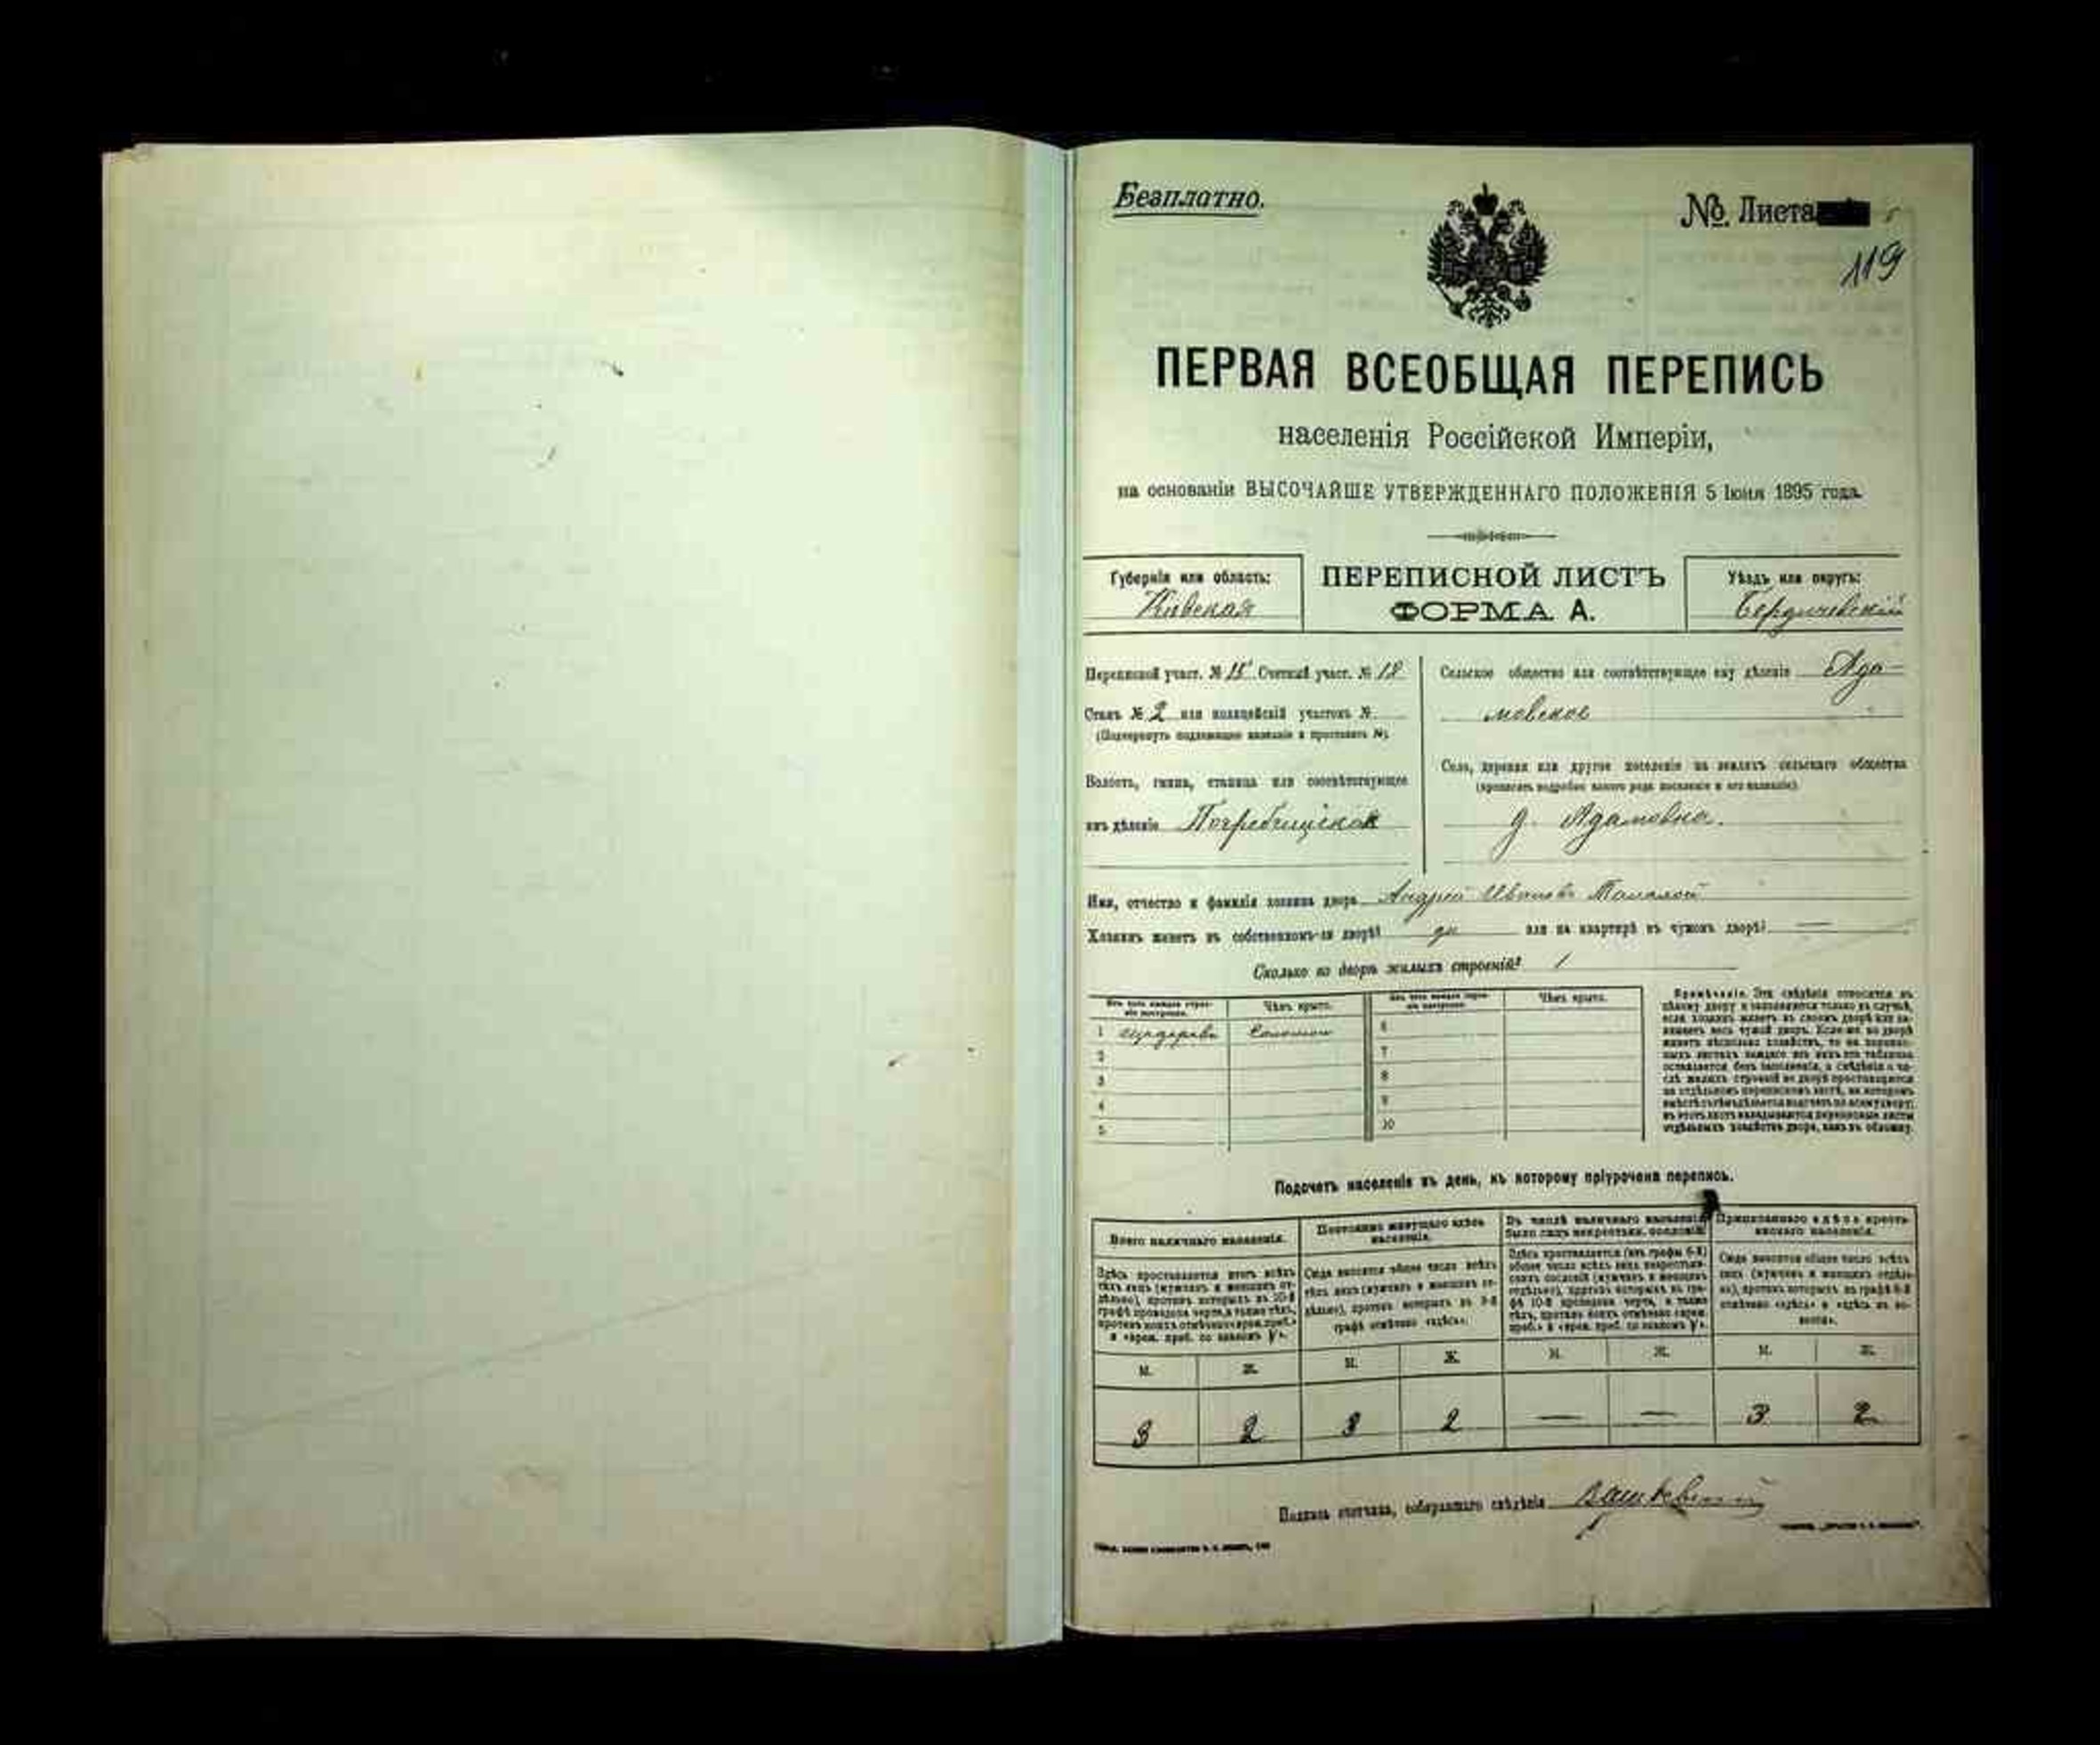 Безплатно.
№ Листа
119
ПЕРВАЯ ВСЕОБЩАЯ ПЕРЕПИСЬ
населенія Россійской Имперіи,
на основаніи ВЫСОЧАЙШЕ УТВЕРЖДЕННАГО ПОЛОЖЕНІЯ 5 Іюня 1895 года.
Губернія или область:
Кіевская
ПЕРЕПИСНОЙ ЛИСТЪ
ФОРМА А.
Уѣздъ или округъ:
Бердичевскій
Переписной участ. № 15 Счетный участ. № 18
Станъ № 2 или полицейскій участокъ №
(Подчеркнуть подлежащее названіе и проставить №).
Волость, гмина, станица или соотвѣтствующее
имъ дѣленіе Погребищская
Сельское общество или соотвѣтствующее ему дѣленіе Ада-
мовское
Село, деревня или другое поселеніе на земляхъ сельскаго общества
(прописать подробно какого рода поселеніе и его названіе).
д. Адамовка.
Имя, отчество и фамилія хозяина двора Андрей Ивановъ
Хозяинъ живетъ въ собственномъ-ли дворѣ? да или на квартирѣ въ чужомъ дворѣ? —
Сколько во дворѣ жилыхъ строеній? 1
Изъ чего каждое строе-
ніе построено.
Чѣмъ крыто.
Изъ чего каждое строе-
ніе построено.
Чѣмъ крыто.
1 Соломою 6
2 7
3 8
4 9
5 10
Примѣчаніе. Эти свѣдѣнія относятся къ
цѣлому двору и заполняются только въ случаѣ,
если хозяинъ живетъ въ своемъ дворѣ или за-
нимаетъ весь чужой дворъ. Если-же во дворѣ
живетъ нѣсколько хозяйствъ, то на перепис-
ныхъ листахъ каждаго изъ нихъ эта табличка
оставляется безъ заполненія, а свѣдѣнія о чи-
слѣ жилыхъ строеній во дворѣ проставляются
на отдѣльномъ переписномъ листѣ, на которомъ
вмѣстѣ съ тѣмъ дѣлается подсчетъ по всему двору;
въ этотъ листъ вкладываются переписные листы
отдѣльныхъ хозяйствъ двора, какъ въ обложку.
Подсчетъ населенія въ день, къ которому пріурочена перепись.
Всего наличнаго населенія.
Здѣсь проставляется итогъ всѣхъ
тѣхъ лицъ (мужчинъ и женщинъ от-
дѣльно), противъ которыхъ въ 10-й
графѣ проведена черта, а также тѣхъ,
противъ коихъ отмѣчено «врем. преб.»
и «врем. преб. со знакомъ V».
Постоянно живущаго здѣсь
населенія.
Сюда вносится общее число всѣхъ
тѣхъ лицъ (мужчинъ и женщинъ от-
дѣльно), противъ которыхъ въ 9-й
графѣ отмѣчено «здѣсь».
Въ числѣ наличнаго населенія
было лицъ некрестьян. сословій:
Здѣсь проставляется (изъ графы 6-й)
общее число всѣхъ лицъ некрестьян-
скихъ сословій (мужчинъ и женщинъ
отдѣльно), противъ которыхъ въ гра-
фѣ 10-й проведена черта, а также
тѣхъ, противъ коихъ отмѣчено «врем.
преб.» и «врем. преб. со знакомъ V».
Приписаннаго здѣсь кресть-
янскаго населенія.
Сюда вносится общее число всѣхъ
лицъ (мужчинъ и женщинъ отдѣль-
но), противъ которыхъ въ графѣ 8-й
отмѣчено «здѣсь» и «здѣсь въ во-
лости».
М. Ж. М. Ж. М. Ж. М. Ж.
3 2 3 2 — — 3 2
Подпись счетчика, собиравшаго свѣдѣнія